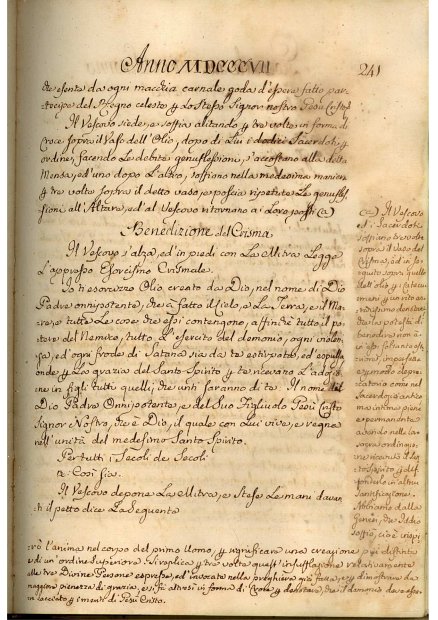 Anno MDCCCVII
241
che esente da ogni macchia carnale goda d'essere fatto par-
tecipe del Regno celeste p Lo stesso Signor nostro Gesù Cristo
Il Vescovo siede, e soffia alitando p tre volte in forma di
Croce sopra il Vaso dell'Olio, dopo di Lui i dodici Sacerdoti p
ordine, facendo Le debite genuflessioni, s'accostano alla detta
Mensa, ed uno dopo L'altro, soffiano nella medesima maniera
p tre volte sopra il detto vaso, e poscia ripetute Le genufles-
sioni all'Altare, ed al Vescovo ritornano ai Loro posti (a)
Benedizione del Crisma
Il Vescovo s'alza, ed in piedi con La Mitra Legge
L'appresso Esorcismo Crismale.
Io ti esorcizzo Olio, creato da Dio, nel nome di Dio
Padre onnipotente, che à fatto il Cielo, e La Terra, e il Ma-
re, e tutte Le cose, che essi contengono, affinchè tutto il po-
tere del Nemico, tutto L'esercito del demonio, ogni violen-
za, ed ogni frode di Satana sia da te estirpato, ed espulsa
onde p La grazia del Santo Spirito p te ricevano L'adozio-
ne in figli tutti quelli, che unti saranno di te. Il nome del
Dio Padre Onnipotente, e del Suo Figliuolo Gesù Cristo
Signor Nostro, che è Dio, il quale con Lui vive, e regna
nell'unità del medesimo Santo Spirito.
Per tutti i Secoli de Secoli
R. Così sia.
Il Vescovo depone La Mitra, e stese Le mani davan-
ti il petto dice La seguente
(a) Il Vescovo
ed i Sacerdoti
soffiano tre volte
sopra il vaso del
Crisma, ed in se-
guito sopra quello
dell'olio p i Catec-
umeni p un rito an-
tichissimo non in
virtù potestà di
benedizione che
si è fatta nell'effu-
sione, impressa
p un modo depre-
catorio come nel
Sacerdoti è anti-
mo intima piena
e permanente
avendo nella la
sacra ordinazio-
ne ricevuto il San-
to Spirito p dif-
fonderlo in altrui
Santificazione.
Abbiamo dalla
Genesi, che Iddio
soffiò, cioè inspi-
rò l'anima nel corpo del primo Uomo, p significare una creazione più distinta
e di un ordine Superiore. Si replica p tre volte quest'insufflazione relativamente
alle tre Divine Persone espresse, ed invocate nella preghiera già fatta, e p dimostrare la
maggiore pienezza di grazia, e si fa altresì in forma di Croce p denotare, che il demonio dev'esse-
re cacciato p i meriti di Gesù Cristo.